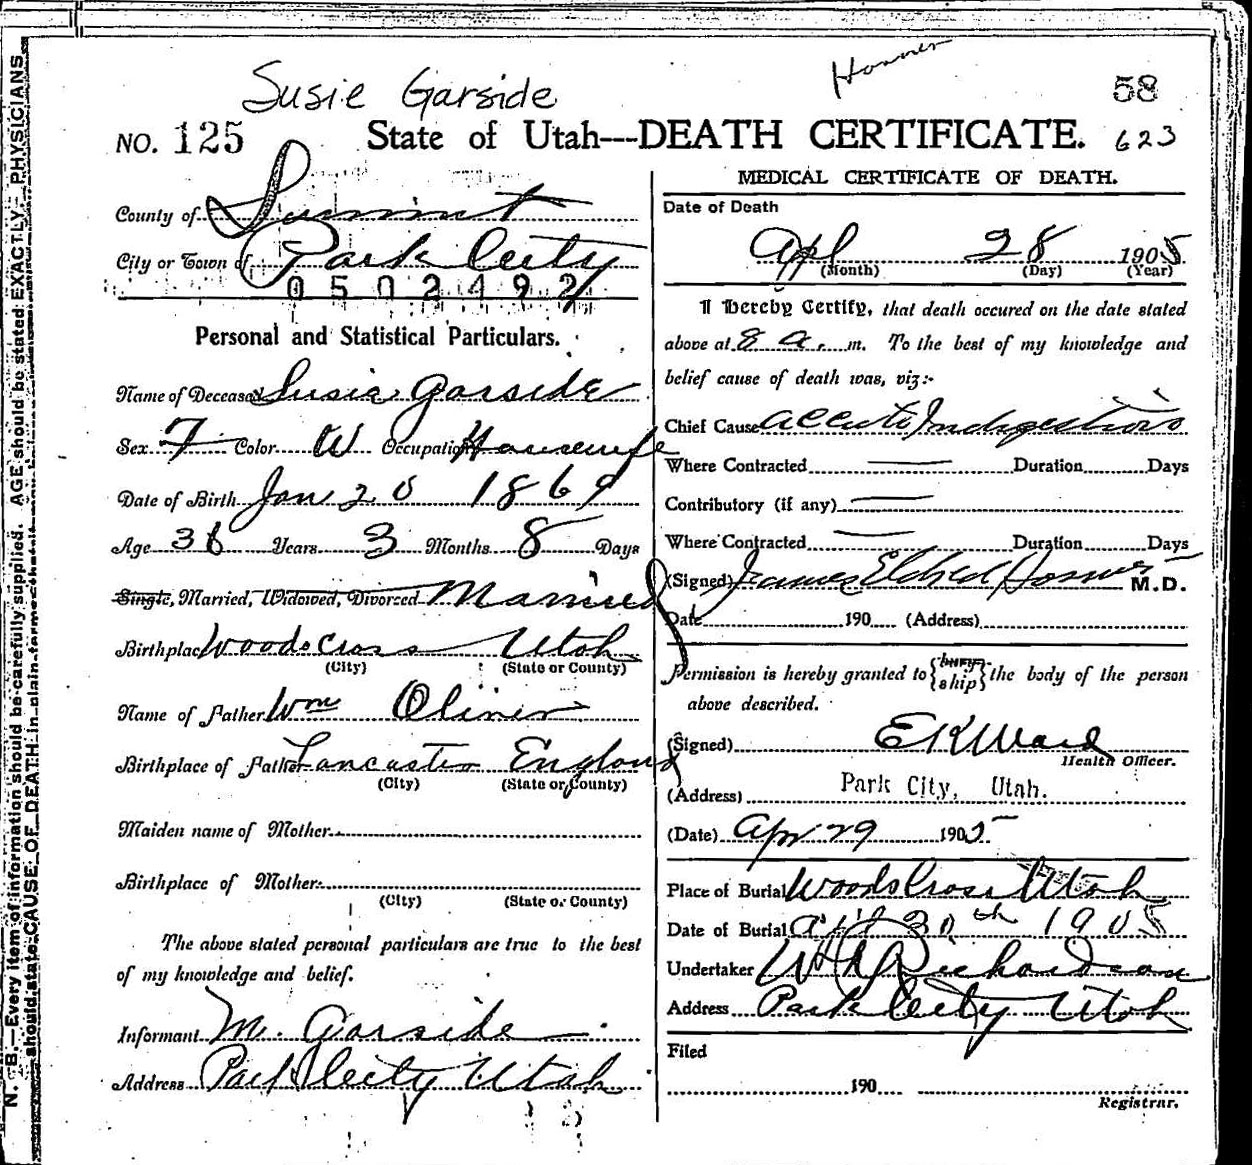 Susie Garside
Horner
58
NO. 125 State of Utah---DEATH CERTIFICATE. 623
County of Summit
City or Town of Park Ceity
0502492
Personal and Statistical Particulars.
Name of Deceased Susie Garside
Sex F Color W Occupation Housewife
Date of Birth Jan 20 1869
Age 36 Years 3 Months 8 Days
Single, Married, Widowed, Divorced Married
Birthplace Woods Cross Utah
(City) (State or County)
Name of Father Wm Oliver
Birthplace of Father Lancaster England
(City) (State or County)
Maiden name of Mother
Birthplace of Mother
(City) (State or County)
The above stated personal particulars are true to the best
of my knowledge and belief.
Informant M. Garside
Address Park Ceity Utah
MEDICAL CERTIFICATE OF DEATH.
Date of Death
Apl 28 1905
(Month) (Day) (Year)
I Hereby Certify, that death occured on the date stated
above at 8 a. m. To the best of my knowledge and
belief cause of death was, viz:-
Chief Cause Accute Indigestion
Where Contracted Duration Days
Contributory (if any)
Where Contracted Duration Days
(Signed) James Eldred Horner M.D.
Date 190 (Address)
Permission is hereby granted to {bury ship} the body of the person
above described.
(Signed) E K Ward
Health Officer.
(Address) Park City, Utah.
(Date) Apr 29 1905
Place of Burial Woods Cross Utah
Date of Burial April 30th 1905
Undertaker Richardson
Address Park Ceity Utah
Filed
190
Registrar.
N. B.—Every item of information should be carefully supplied. AGE should be stated EXACTLY. PHYSICIANS
should state CAUSE OF DEATH in plain terms